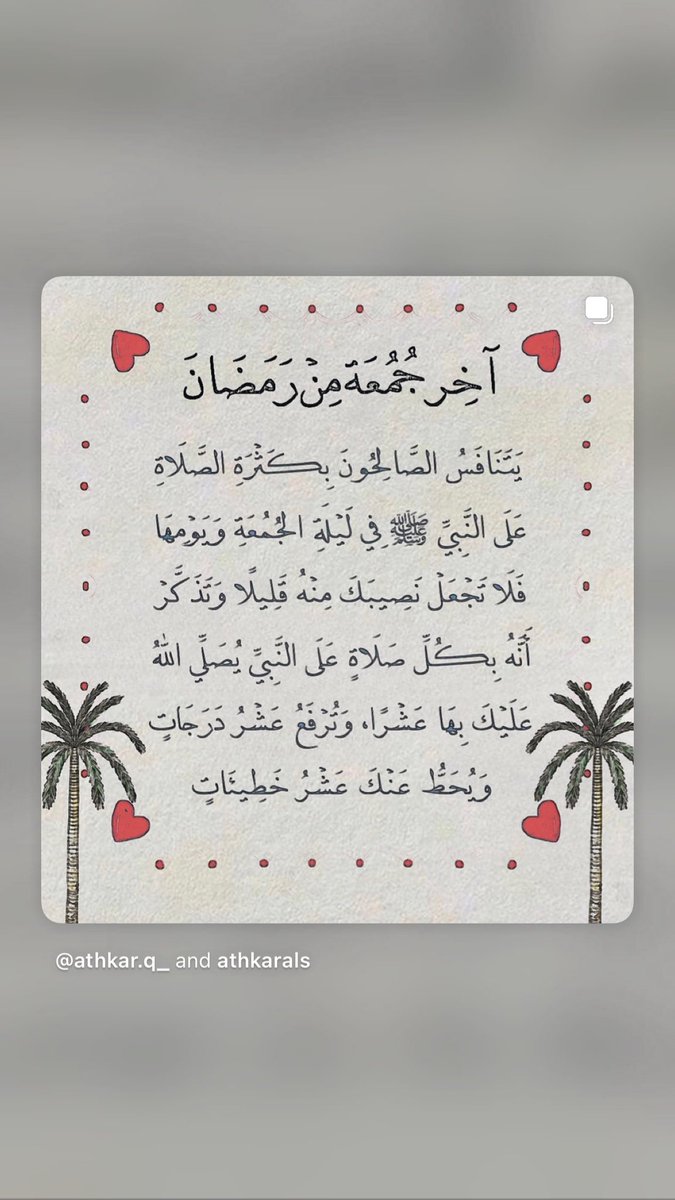 آخِر جُمُعَة مِنْ رَمَضَانَ
يَتَنَافَسُ الصَّالِحُونَ بِكَثْرَةِ الصَّلَاةِ
عَلَى النَّبِيِّ ﷺ فِي لَيْلَةِ الجُمُعَةِ وَيَوْمِهَا
فَلَا تَجْعَلْ نَصِيبَكَ مِنْهُ قَلِيلًا وَتَذَكَّرْ
أَنَّهُ بِكُلِّ صَلَاةٍ عَلَى النَّبِيِّ يُصَلِّي اللهُ
عَلَيْكَ بِهَا عَشْرًا، وَتُرْفَعُ عَشْرُ دَرَجَاتٍ
وَيُحَطُّ عَنْكَ عَشْرُ خَطِيئَاتٍ
@athkar.q_ and athkarals